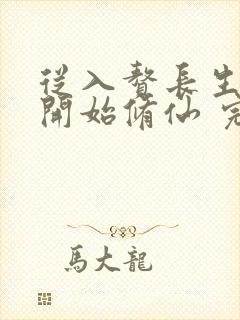 從入贅長生
開始脩仙 完
馬大龍